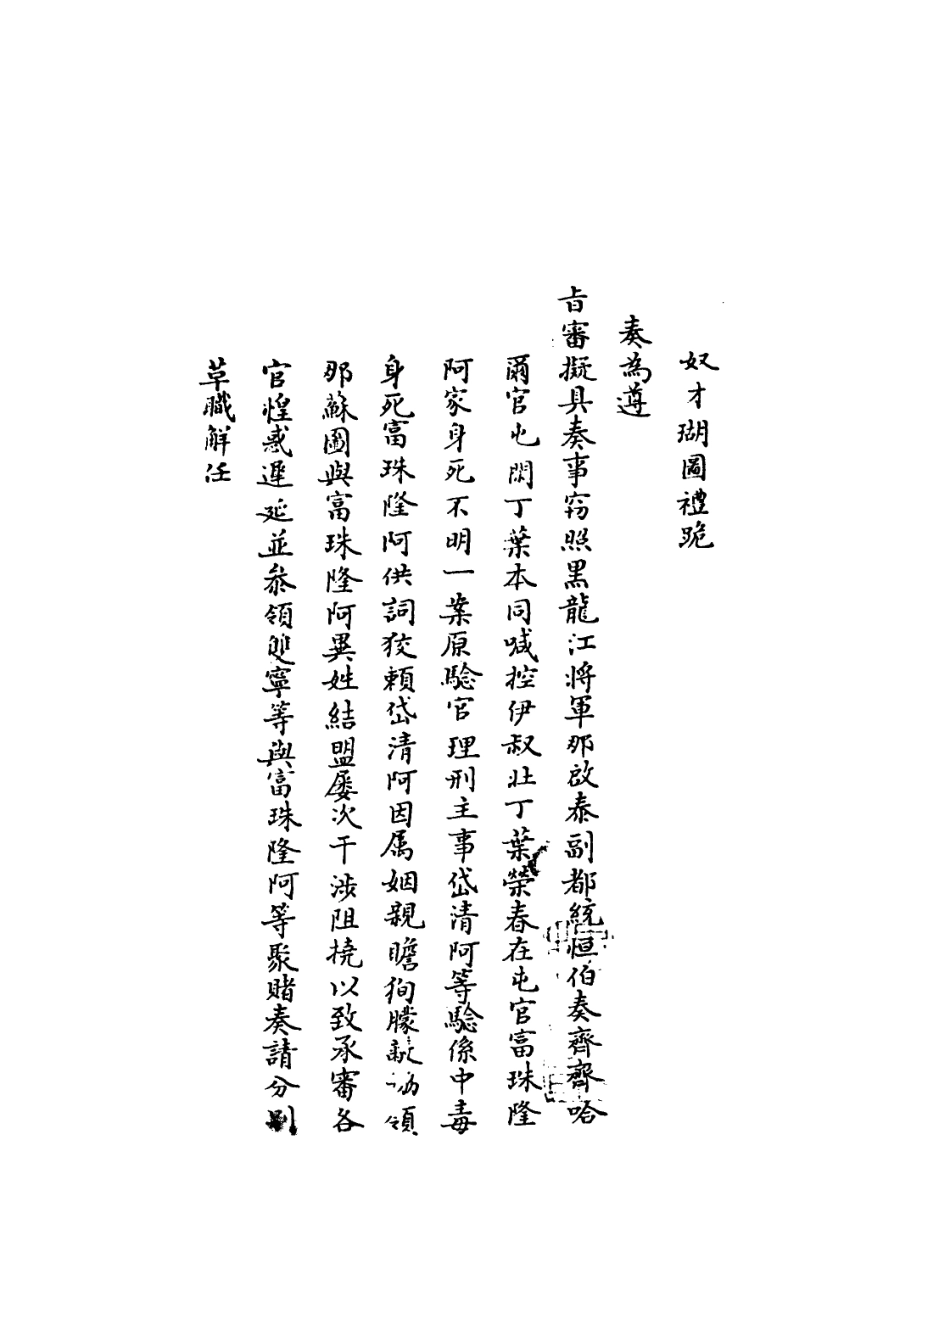 奴才瑚圖禮跪
奏為遵
旨審擬具奏事窃照黑龍江將軍那啟泰副都統恒伯奏齊齊哈
爾官屯閑丁葉本同喊控伊叔壯丁葉榮春在屯官富珠隆
阿家身死不明一案原驗官理刑主事岱清阿等驗係中毒
身死富珠隆阿供詞狡賴岱清阿因属姻親瞻徇朦蔽協領
那蘇圖與富珠隆阿異姓結盟屡次干涉阻撓以致承審各
官惶惑遲延並叅領雙寧等與富珠隆阿等聚賭奏請分別
革職解任